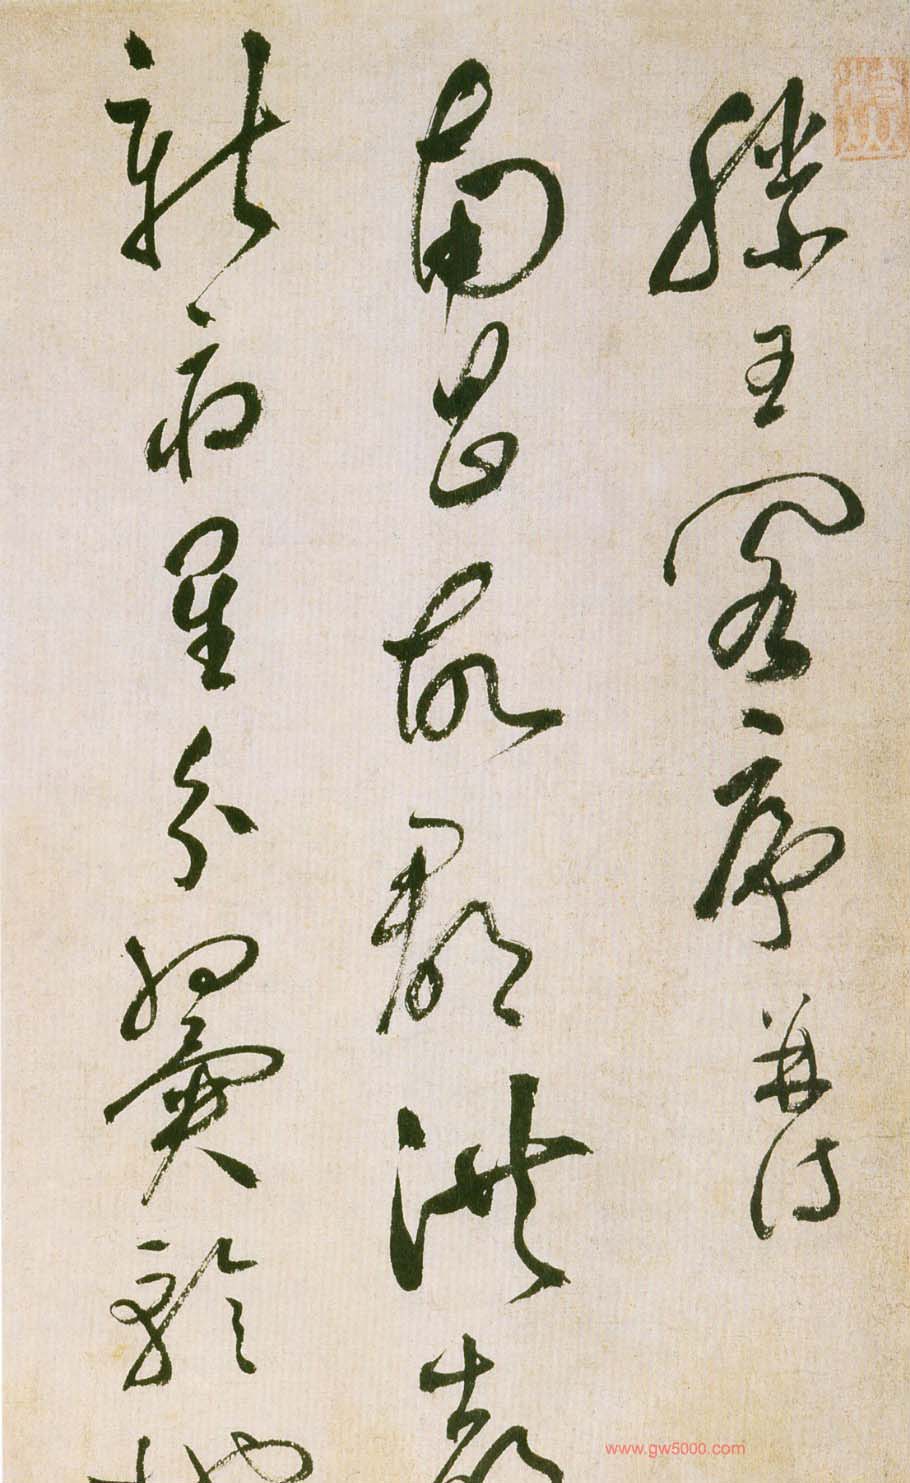 滕王閣序並詩
南昌故郡洪都
新府星分翼軫地
www.gw5000.com